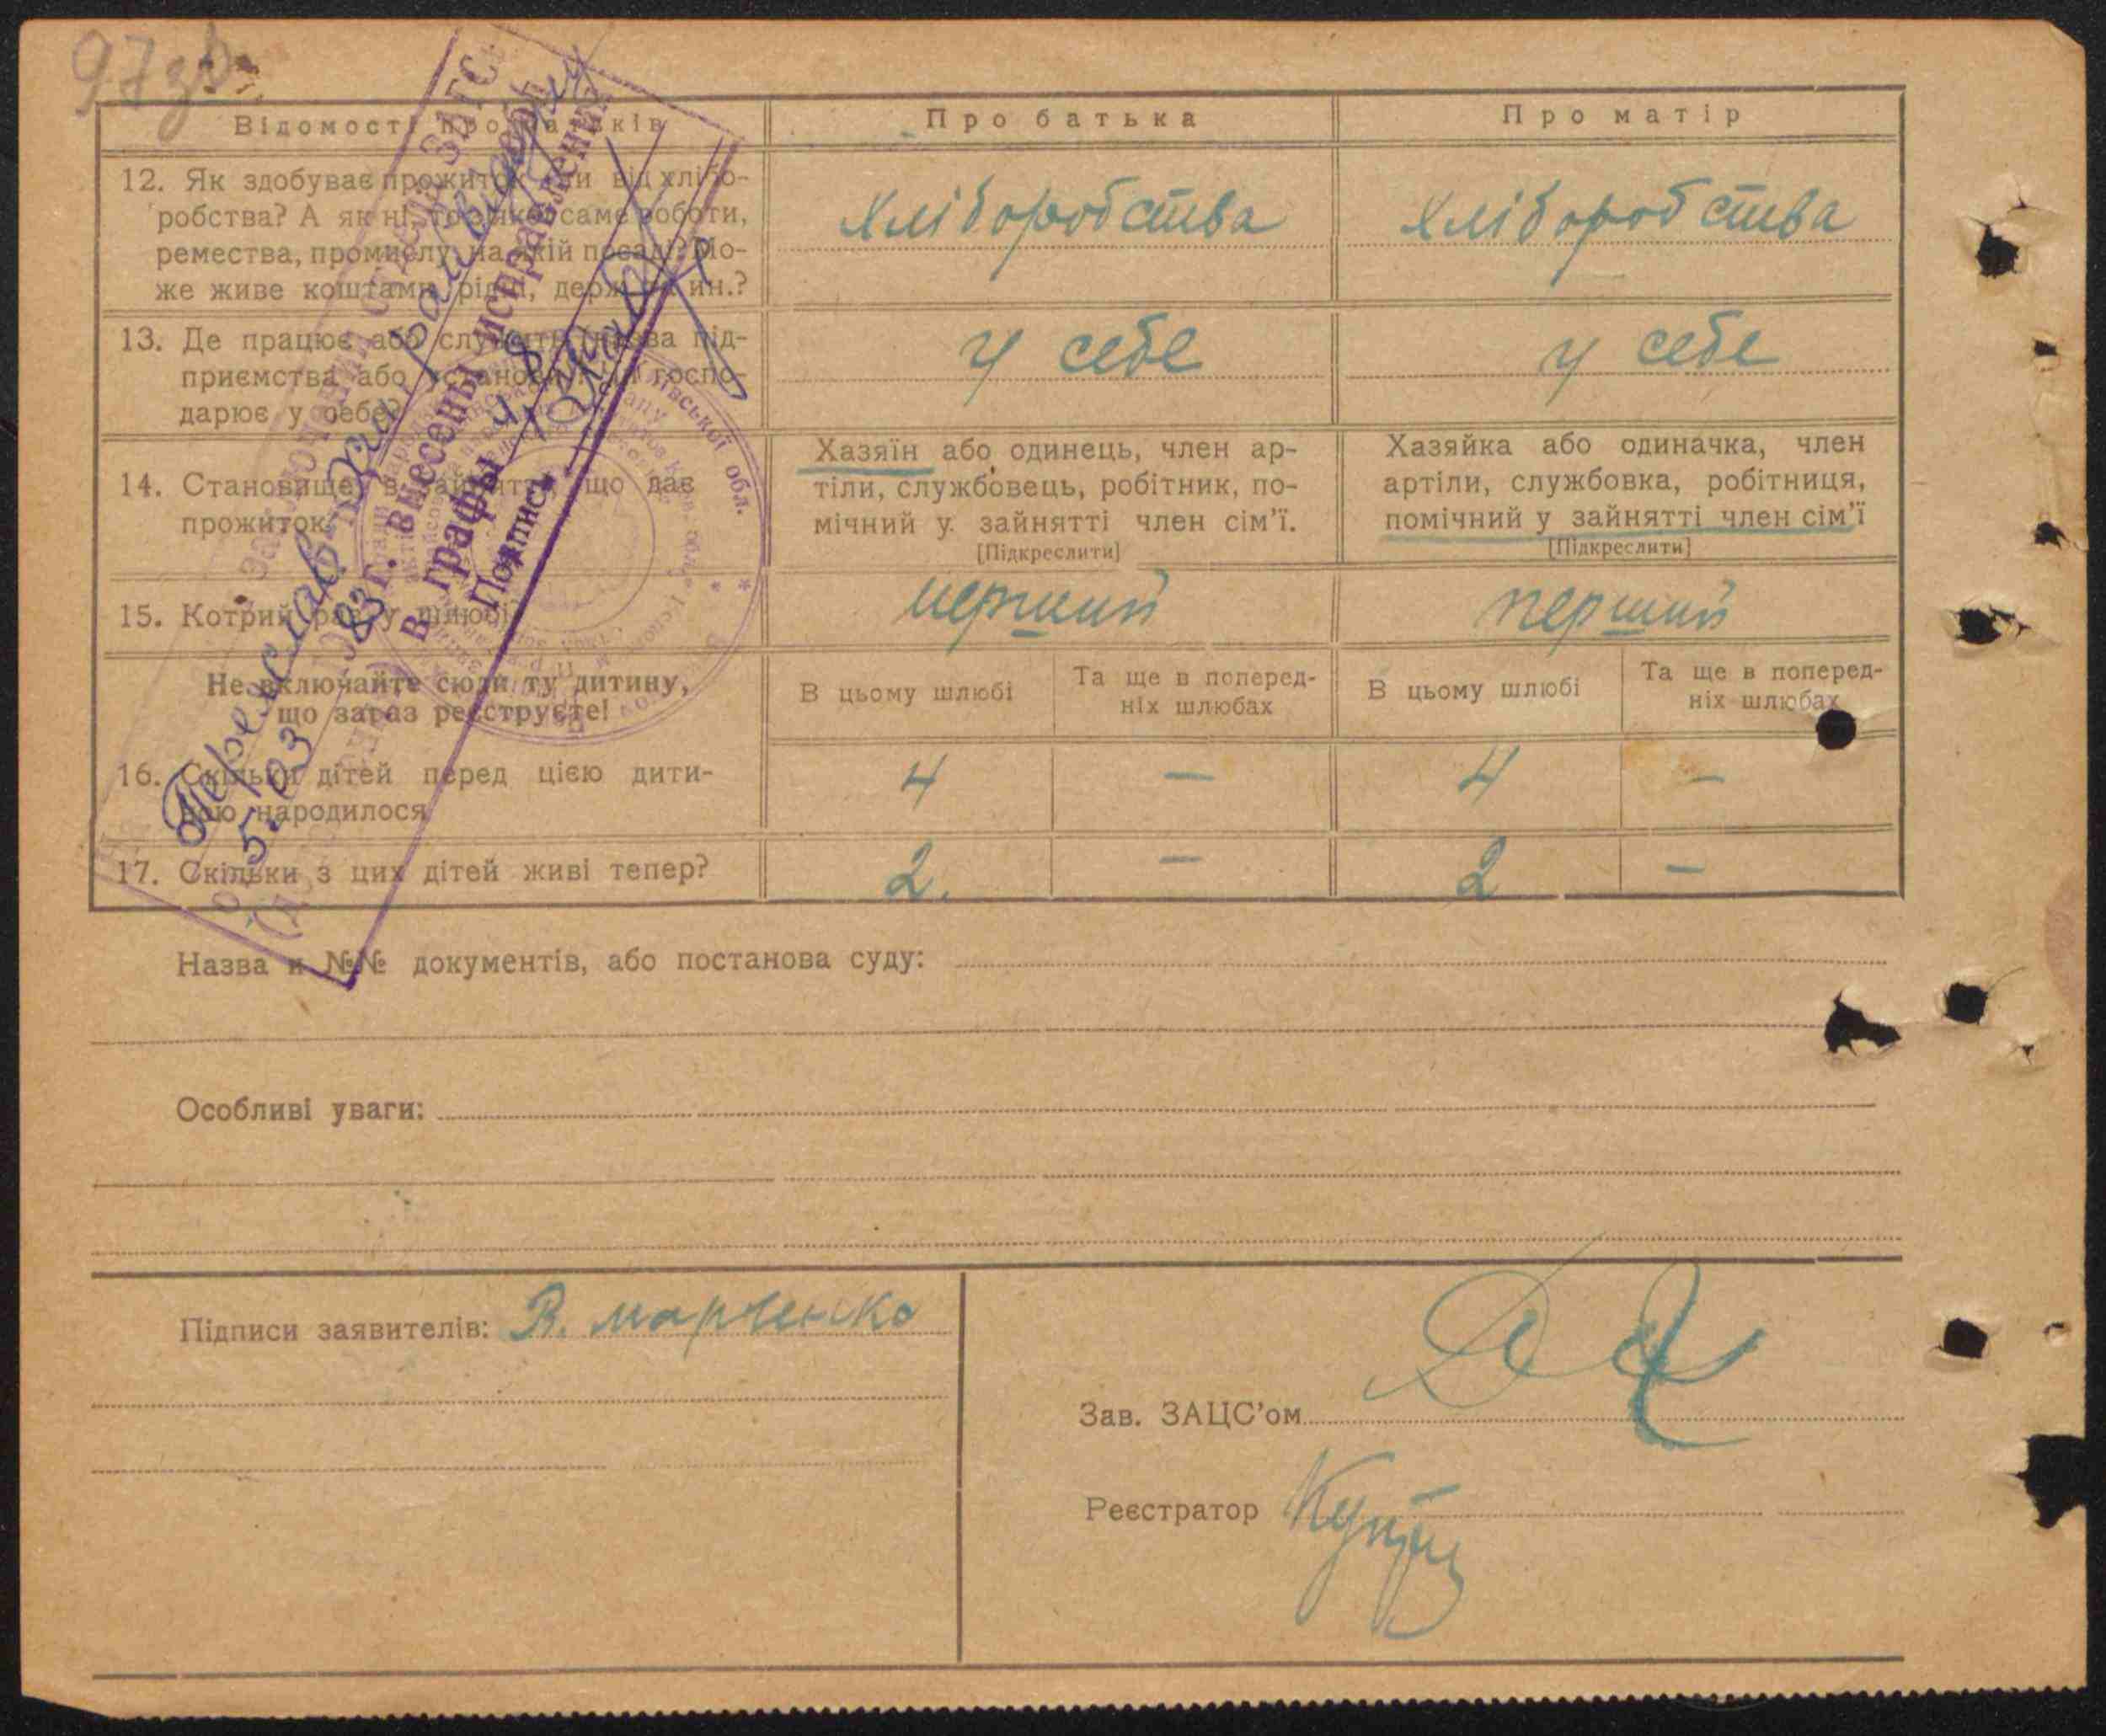 97зв.
Відомості про батьків
Про батька
Про матір
12. Як здобуває прожиток: чи від хлібо-
робства? А як ні, то з якої саме роботи,
ремества, промислу, на якій посаді? Мо-
же живе коштами рідні, держ. и ин.?
Хліборобства
Хліборобства
13. Де працює або служить (назва під-
приємства або установи)? Чи госпо-
дарює у себе?
У себе
У себе
14. Становище в зайнятті, що дає
прожиток
Хазяїн або одинець, член ар-
тіли, службовець, робітник, по-
мічний у зайнятті член сім'ї.
[Підкреслити]
Хазяйка або одиначка, член
артіли, службовка, робітниця,
помічний у зайнятті член сім'ї
[Підкреслити]
15. Котрий раз у шлюбі?
перший
перший
Не включайте сюди ту дитину,
що зараз реєструєте!
В цьому шлюбі
Та ще в поперед-
ніх шлюбах
В цьому шлюбі
Та ще в поперед-
ніх шлюбах
16. Скільки дітей перед цією дити-
ною народилося
4
—
4
—
17. Скільки з цих дітей живі тепер?
2.
—
2
—
ЗАГС
5. 03 1983 г. внесены исправления
в графы 4, 8
Подпись
Київської обл.
Назва и №№ документів, або постанова суду:
Особливі уваги:
Підписи заявителів: В. марченко
Зав. ЗАЦС'ом
Реєстратор